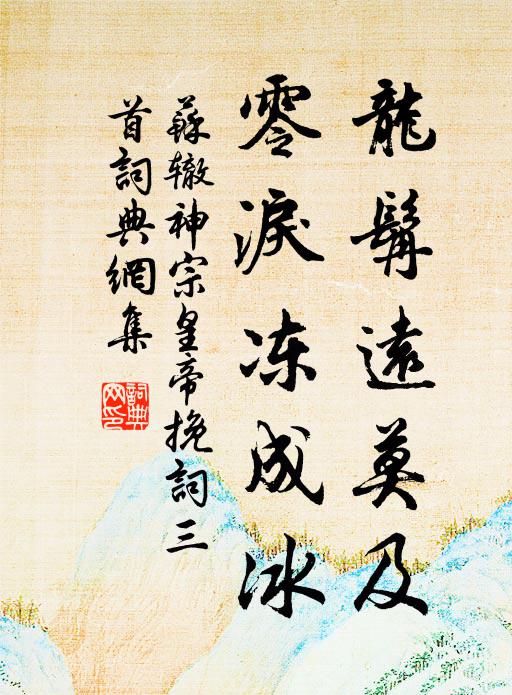 龍髯遠莫及
零淚冻成冰
蘇辙神宗皇帝挽詞三
首詞典網集
詞典
网印